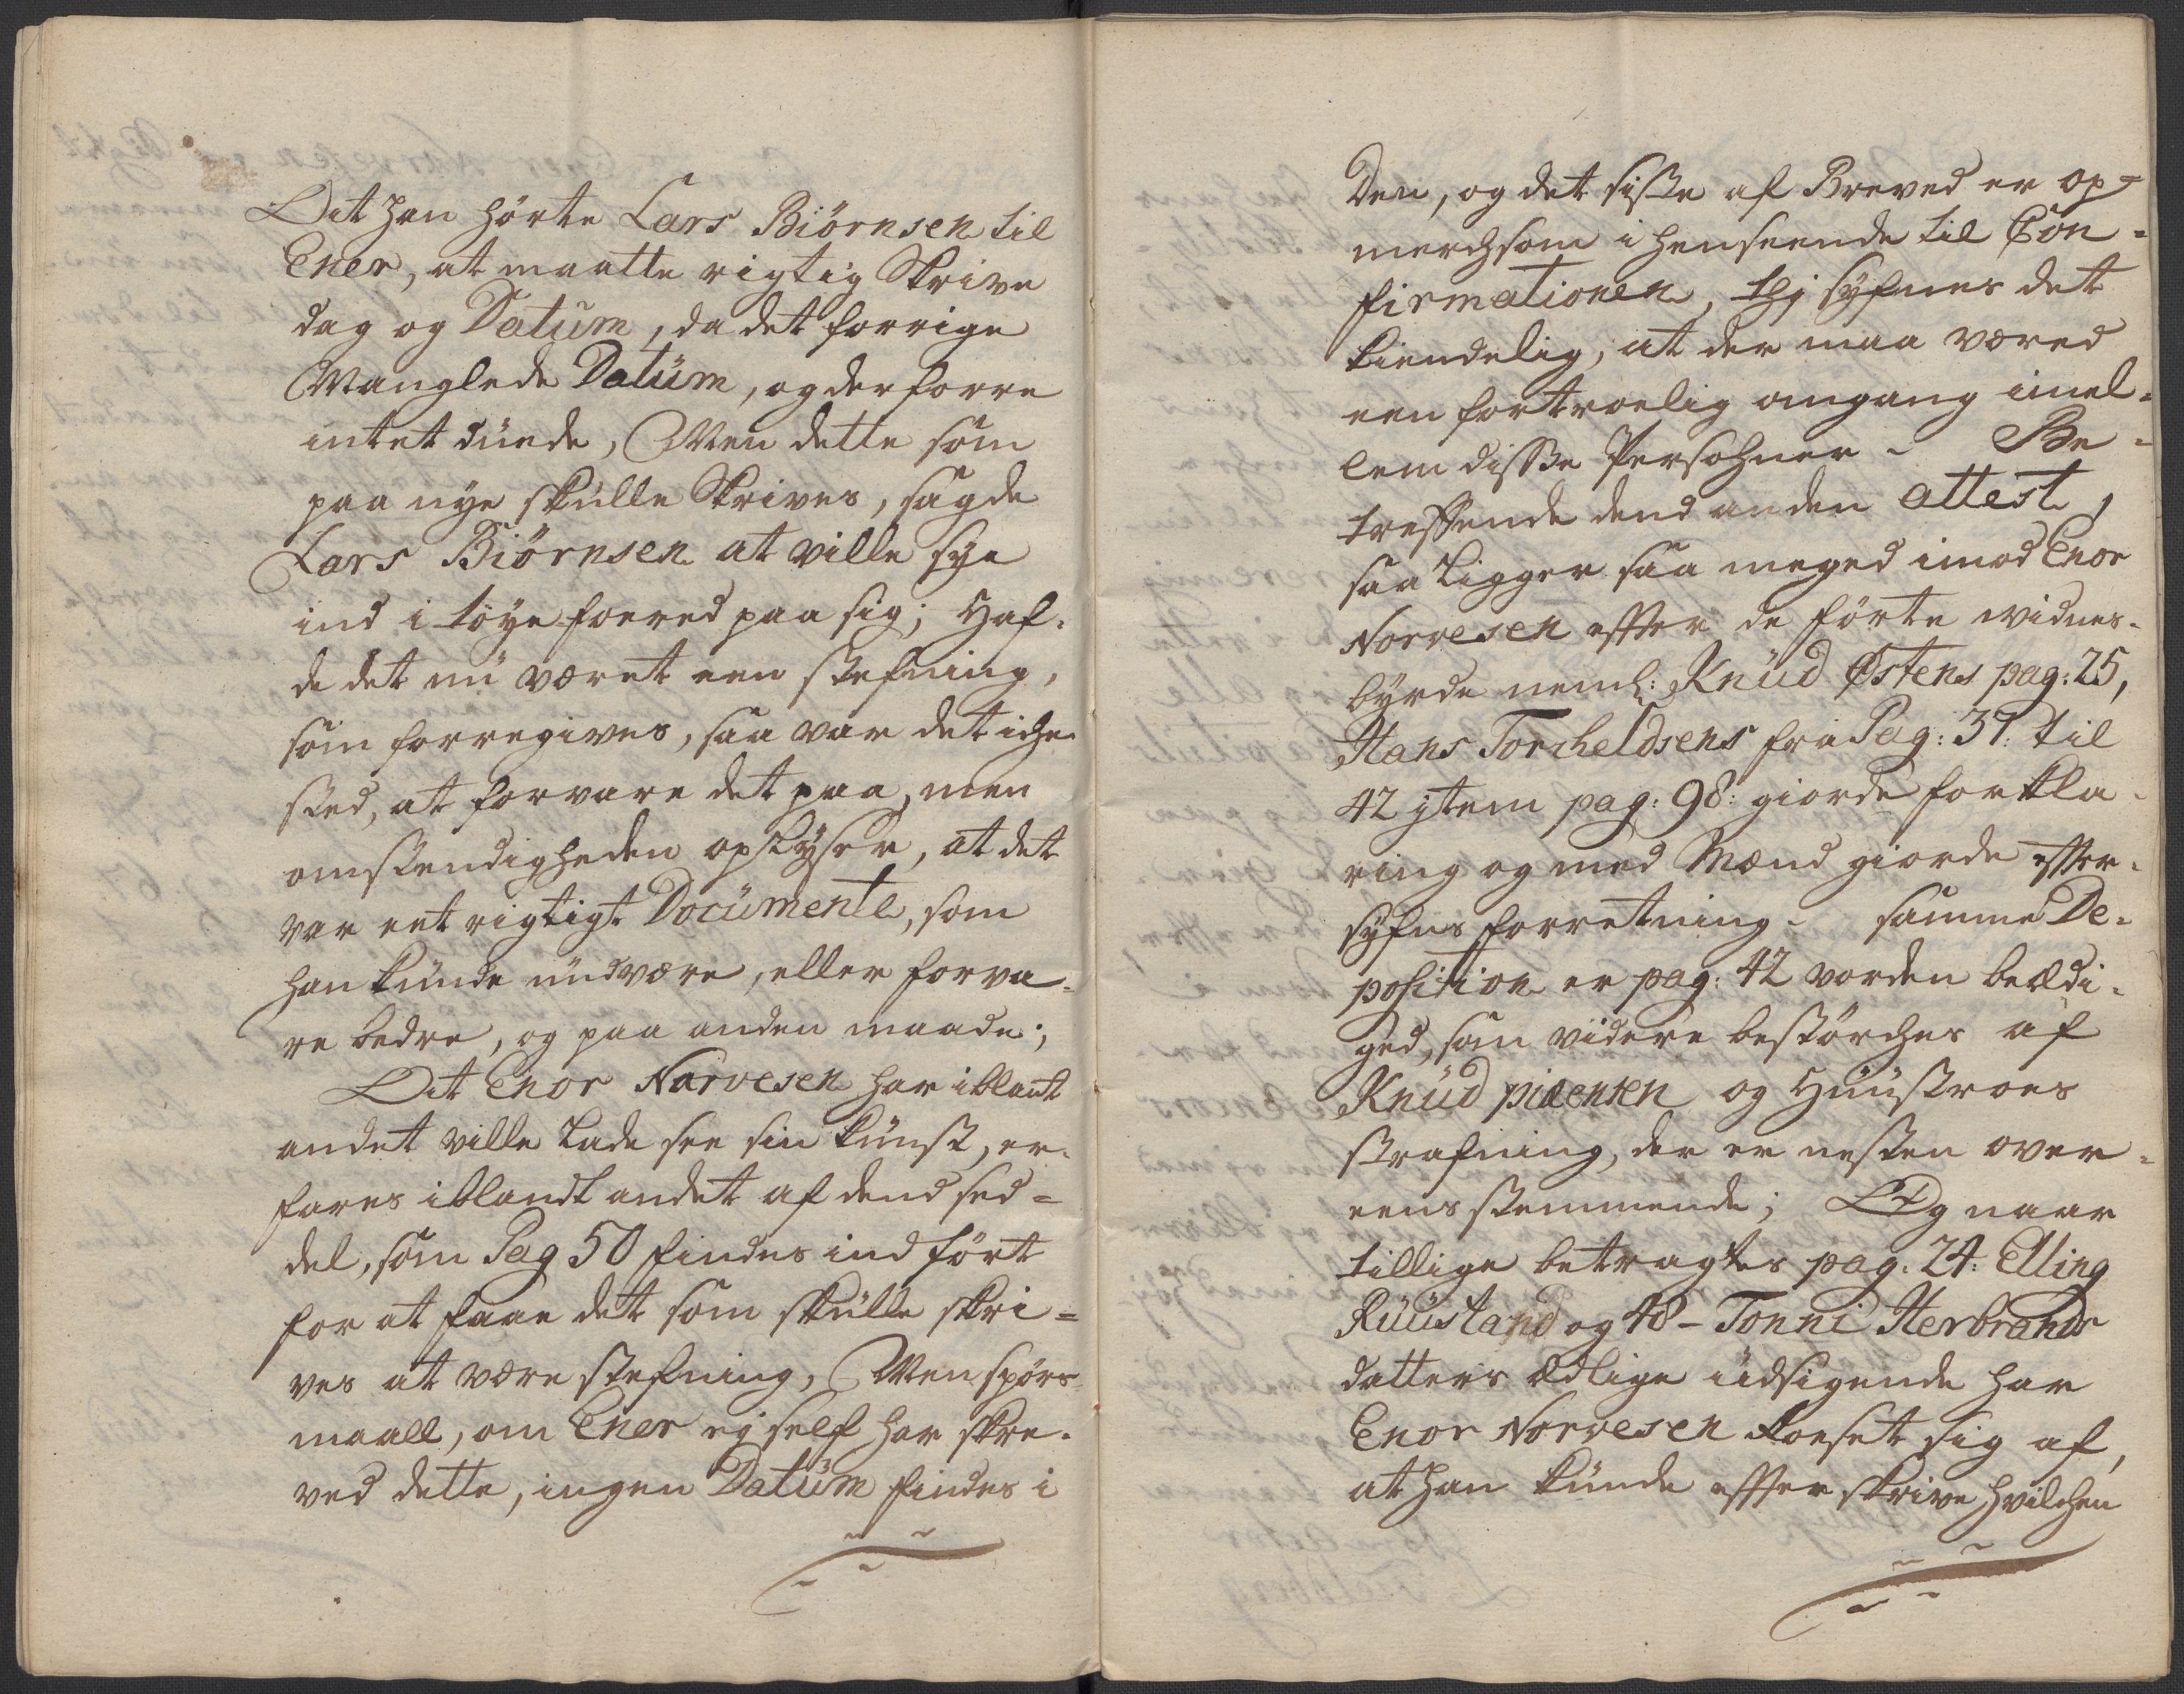 At han hörte Lars Biörnsen til
Ener, at maatte rigtig Skrive
dag og Datum, da det forrige
Manglede Datum, og derforre
intet duede, Men dette som
paa nye skulle Skrives, sagde
Lars Biörnsen at ville sye
ind i töye foered paa sig; Haf-
de det nu været een stefning,
som forregives, saa var det iche
sted, at forvare det paa, men
omstendigheden oplyser, at det
var eet rigtigt Documente, som
han kunde undvære, eller forva-
re bedre, og paa anden maade;
At Enor Narvesen har iblant
andet ville Lade see sin kunst, er-
fares iblandt andet af dend sed=
del, som Pag 50 findes ind fört
for at faae det som skulle skri=
ves at være stefning, Men spörs-
maall, om Ener ej self har skre-
ved dette, ingen Datum findes i
Den, og det siste af Breved er op=
merchsom i henseende til Con=
firmationen, thj syfnes det
kiendelig, at der maa væred
een fortroelig omgang imel=
lem disse Persohner - Be=
treffende dend anden attest,
saa Ligger saa meged imod Enor
Norvesen effter de förte vidnes-
byrde neml: Knud Østens pag: 25,
Hans Torcheldsens fra Pag: 31: til
42 jtem pag: 98: giorde forkla-
ring og med Mænd giorde effter-
syfns forretning - samme De-
position er pag: 42 vorden beædi-
ged, som videre bestörches af
Knud og Huustroes
skrafning, der er nesten over=
eens stemmende; Og naar
tillige betragtes pag. 24: Elling
Ruustand og 48 - Tonni Herbrands
datters ædlige udsigende har
Enor Norvesen Roeset sig af,
at han kunde effter skrive hvilchen